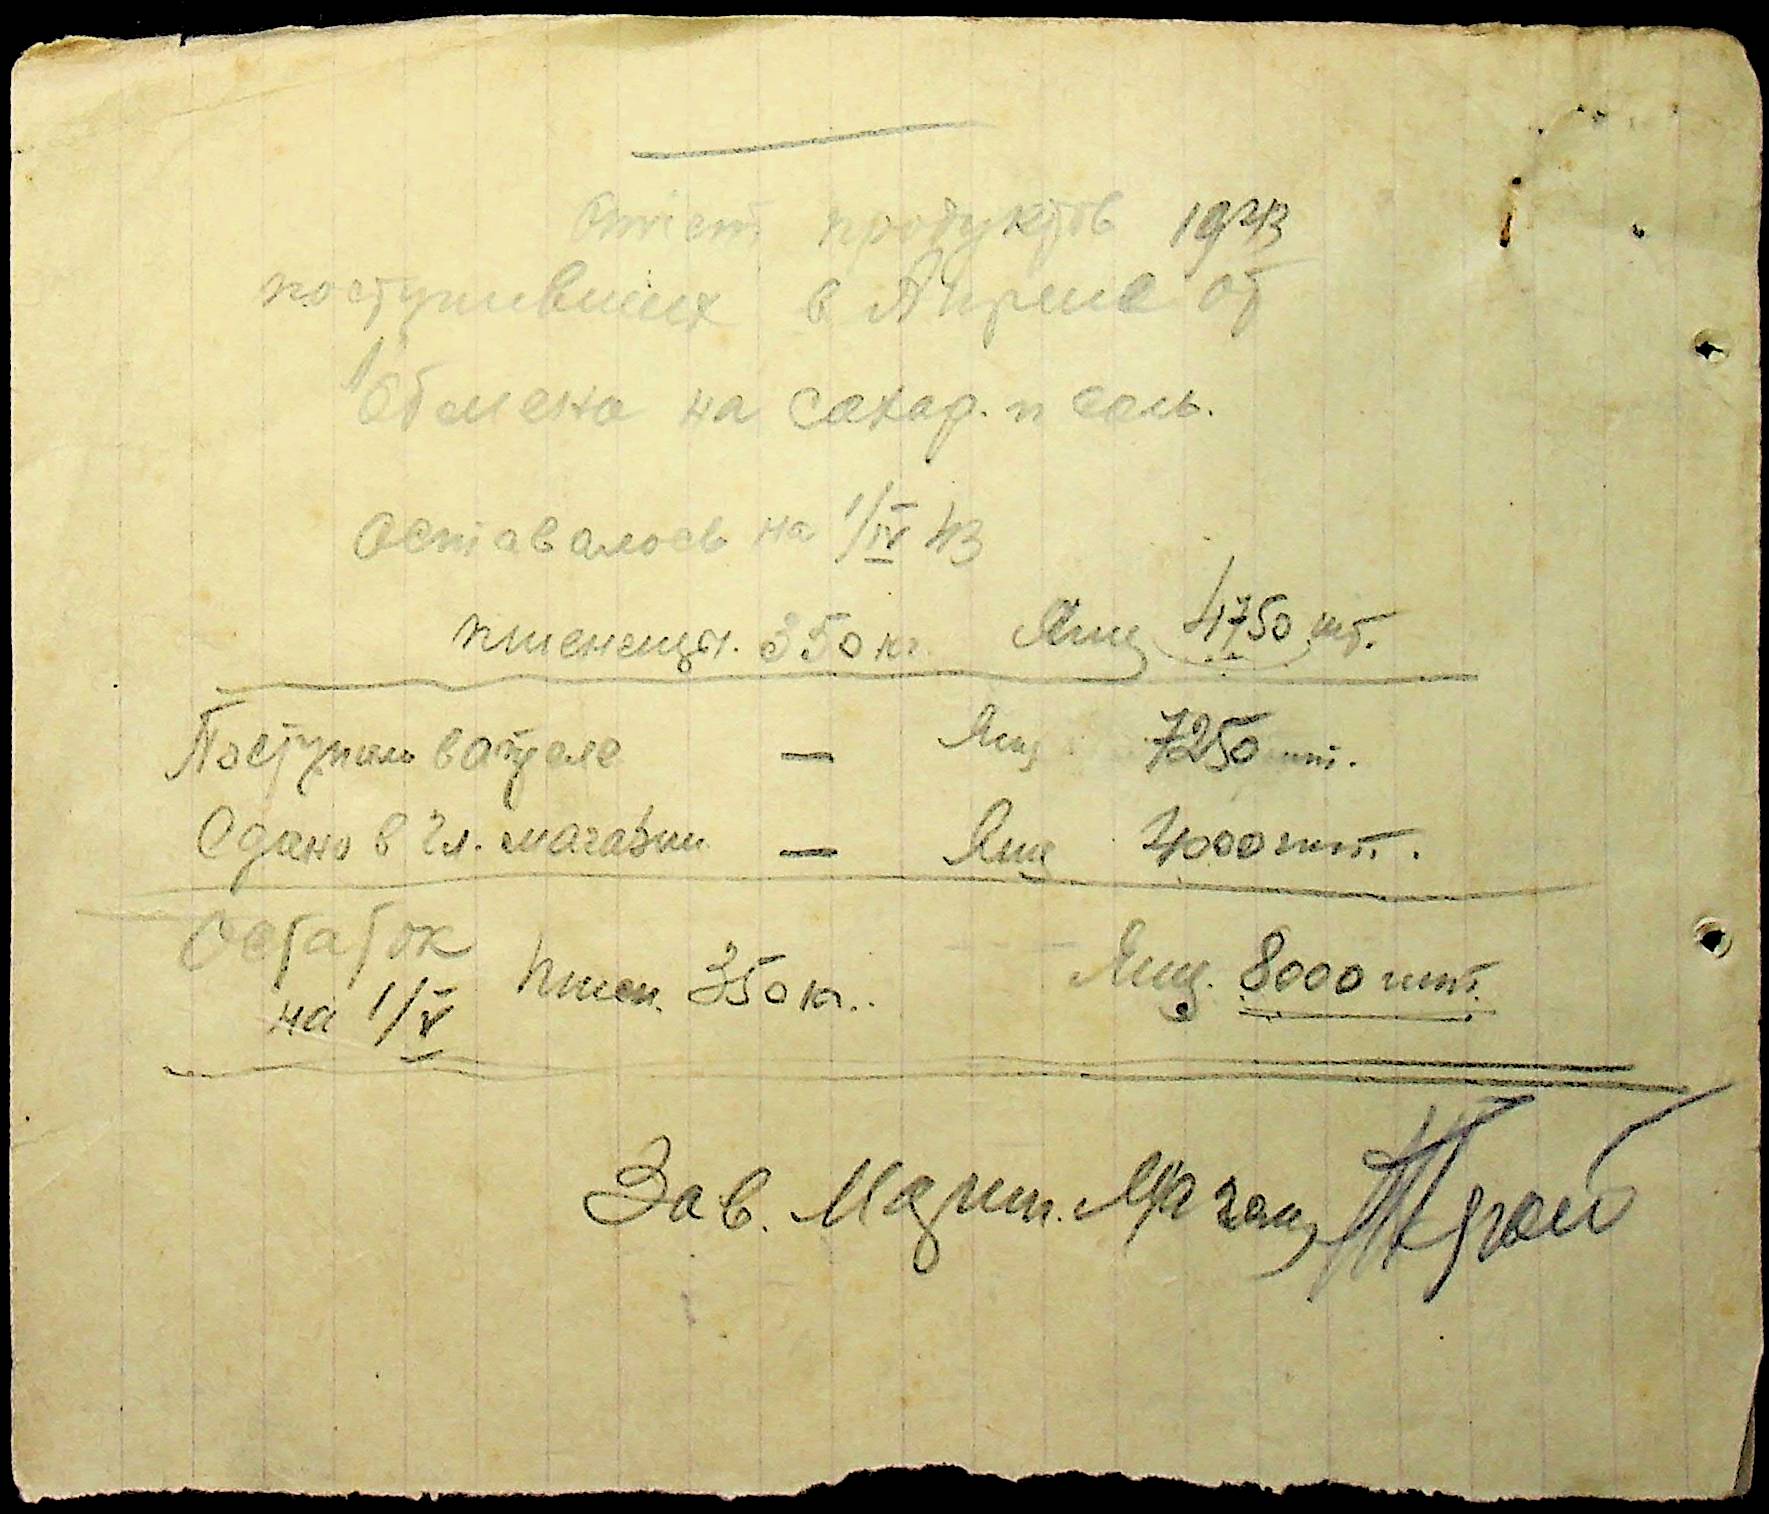 отчет продуктов 1943
поступивших в Апреле от
Обмена на сахар. и соль.
Оставалось на 1/IV 43
пшеницы. 350 кг. Яиц 4750 шт.
Поступило в апреле — Яиц 7250 шт.
Сдано в гл. магазин — Яиц 4000 шт.
Остаток
на 1/V Пшен. 350 кг. Яиц. 8000 шт.
Зав.